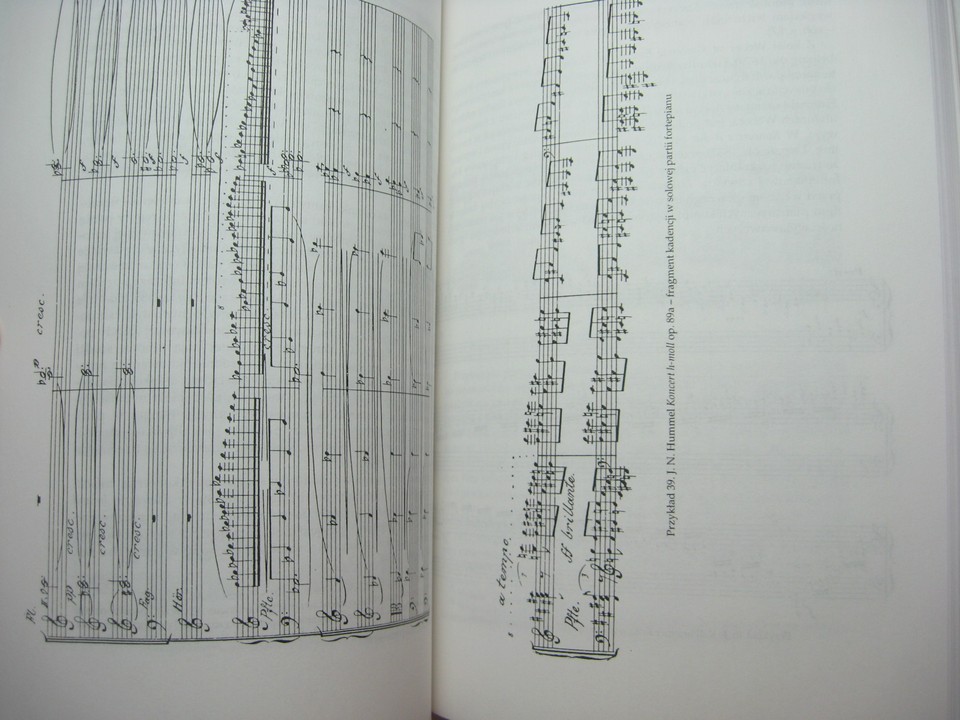 Fl.
a 2.
cresc.
pp
cresc.
cresc.
cresc.
Fag.
Hör.
Pfte.
cresc.
a tempo.
Pfte.
ff brillante.
Przykład 39. J. N. Hummel Koncert h-moll op. 89a – fragment kadencji w solowej partii fortepianu